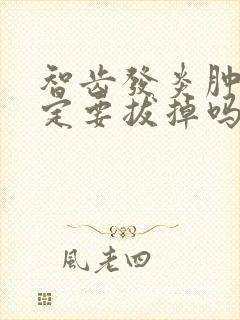 智齿發炎肿
定要拔掉吗
風老四